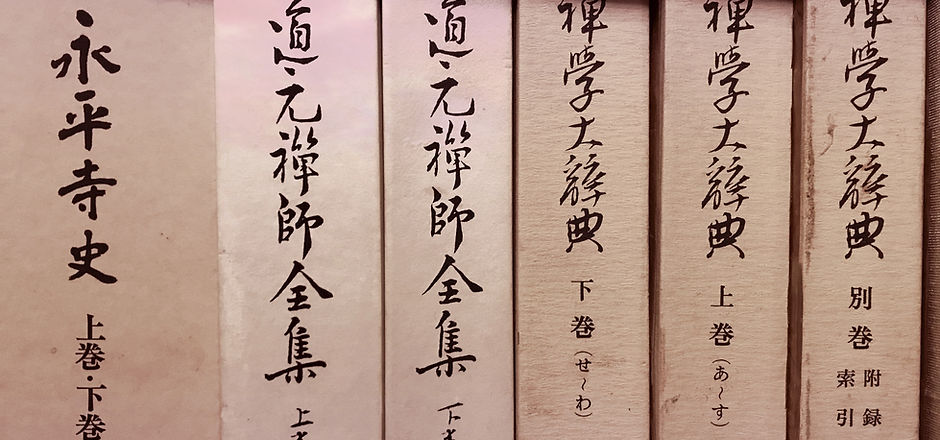 永平寺史
上巻・下巻
道元禅師全集
上
道元禅師全集
下
禅学大辞典
下巻(せ〜わ)
禅學大辞典
上巻(あ〜す)
禅學大辞典
別巻
附録
索引